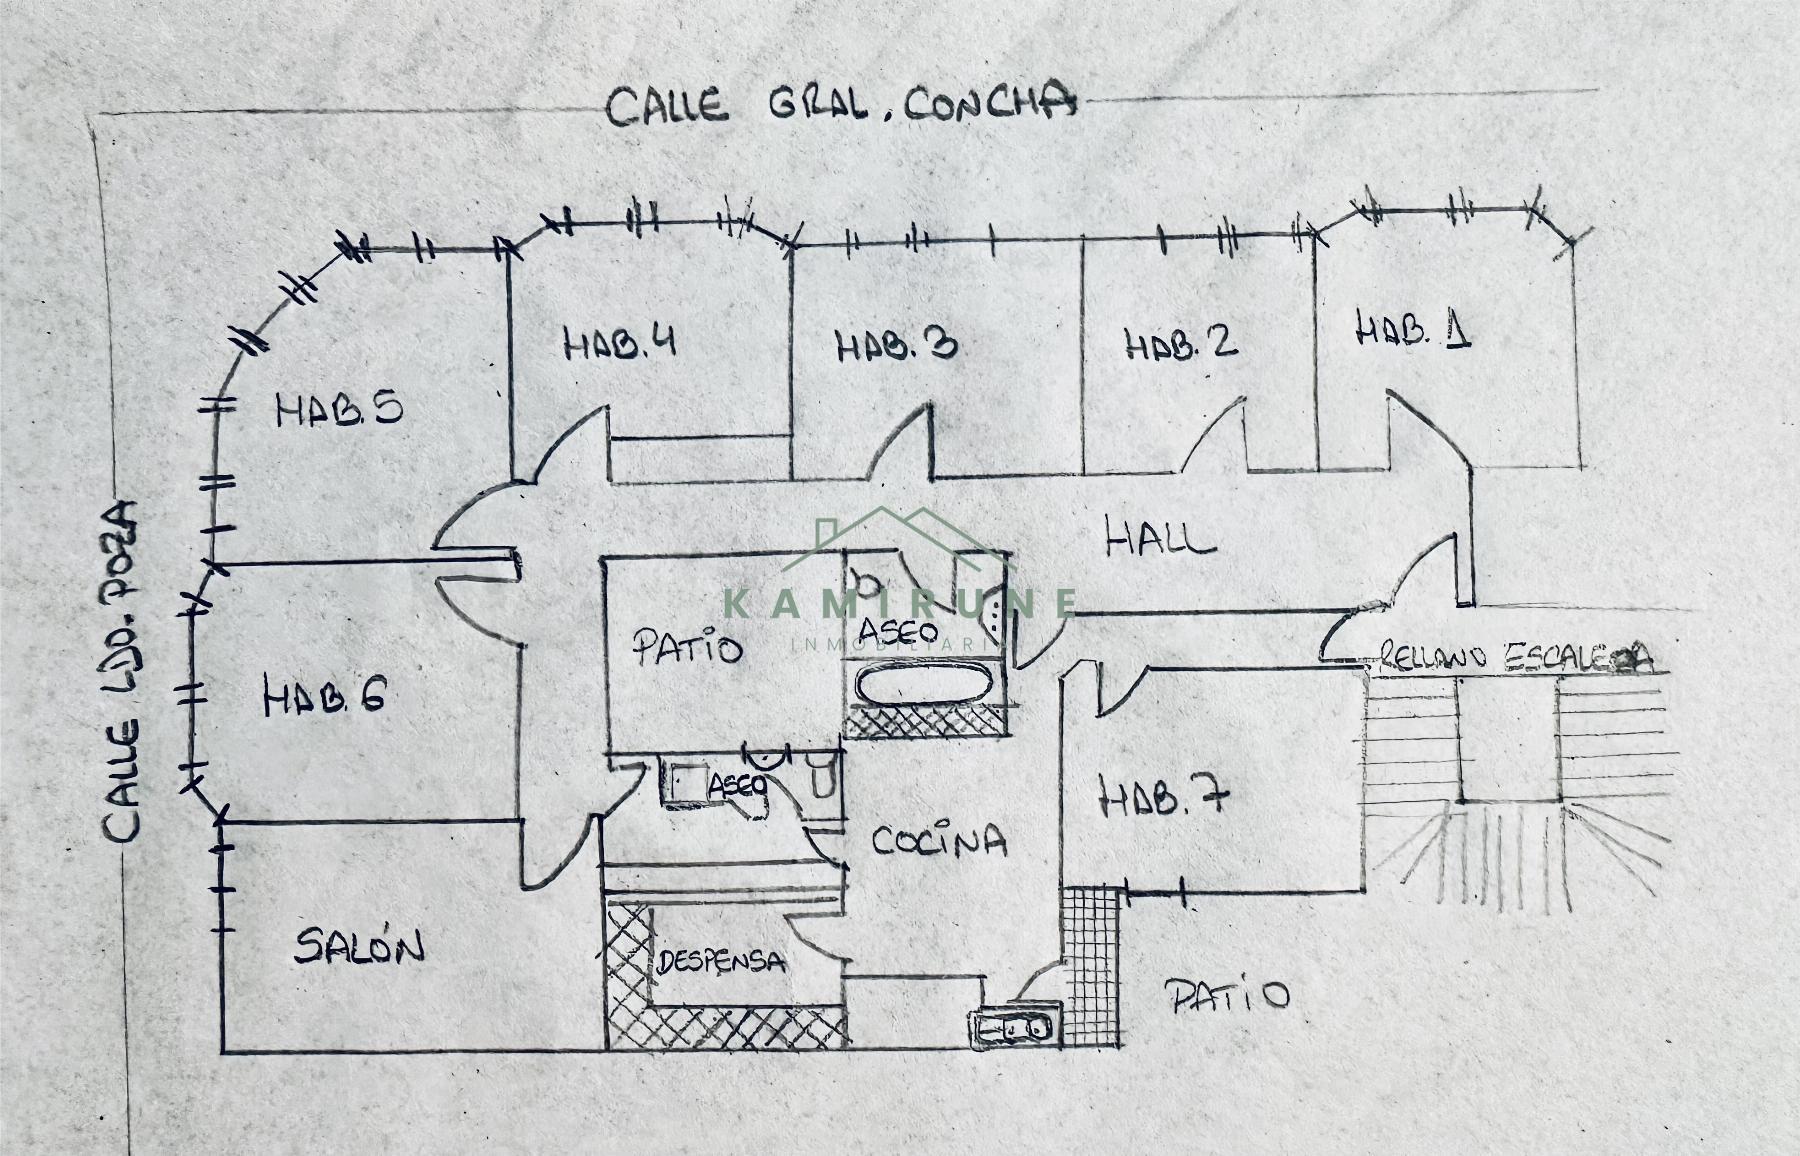 CALLE GRAL. CONCHA
HAB. 4
HAB. 3
HAB. 2
HAB. 1
HAB. 5
CALLE LDO. POZA
HALL
KAMIRUNE
INMOBILIARI
PATIO
ASEO
RELLANO ESCALERA
HAB. 6
ASEO
HAB. 7
COCINA
SALÓN
DESPENSA
PATIO